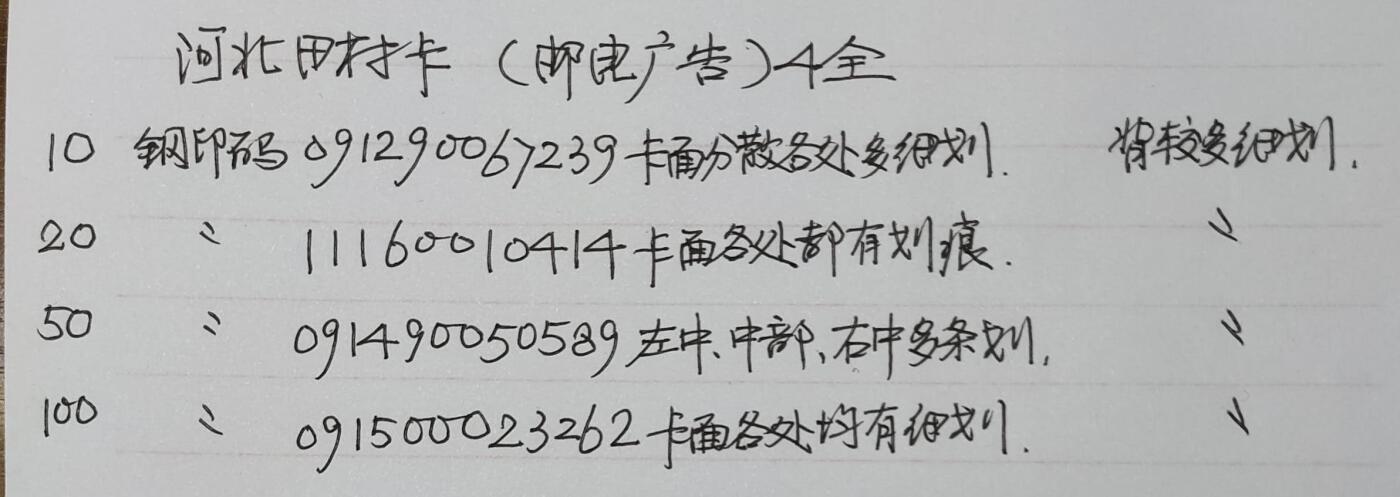 河北田村卡（邮电广告）4全
10 钢印码 091290067239 卡面分散各处多细划. 背较多细划.
20 〃 11160010414 卡面各处都有划痕. 〃
50 〃 091490050589 左中、中部、右中多条划. 〃
100 〃 091500023262 卡面各处均有细划. 〃